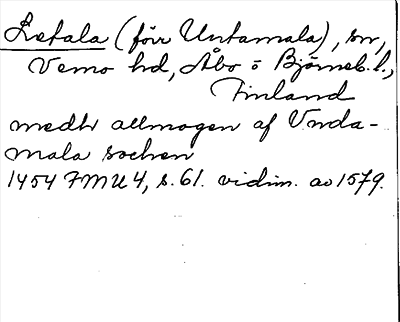 Letala (förr Untamala), sn,
Vemo hd, Åbo o Björneb. l.,
Finland
medh allmogen af Vnda-
mala sochen
1454 FMU 4, s. 61. vidim. av 1579.